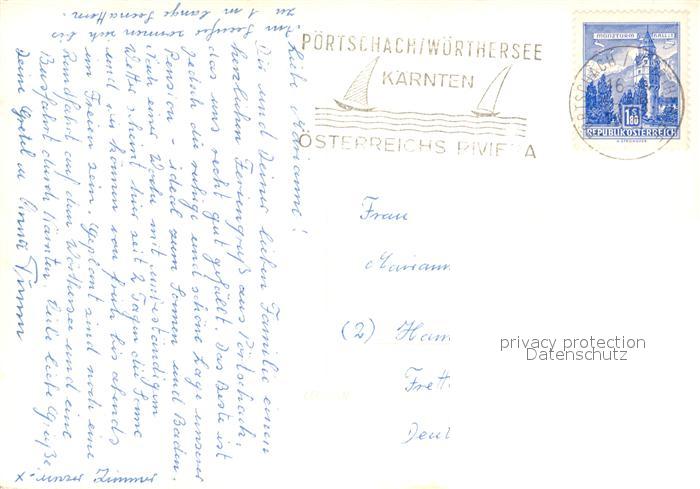 PÖRTSCHACH/WÖRTHERSEE
KÄRNTEN
ÖSTERREICHS RIVIERA
MÜNZTURM HALL I. T.
1.80
REPUBLIK ÖSTERREICH
Liebe Mariann!
Dir und Deiner lieben Familie einen
herzlichen Feriengruß aus Pörtschach,
das uns recht gut gefällt. Das Beste ist
jedoch die ruhige und schöne Lage unserer
Pension - ideal zum Sonnen und Baden.
Nach einer Woche mit unbeständigem
Wetter scheint hier seit 2 Tagen die Sonne
und wir können von früh bis abends
im Freien sein. Geplant sind noch eine
Rundfahrt auf dem Wörthersee und eine
Busfahrt durch Kärnten. Viele liebe Grüße
Deine Gretel u.
x- unser Zimmer
Im Seeufer sonnen sich bis
zu 1 m lange
Frau
Mariann
(2) Ham
Frett
Deut
privacy protection
Datenschutz